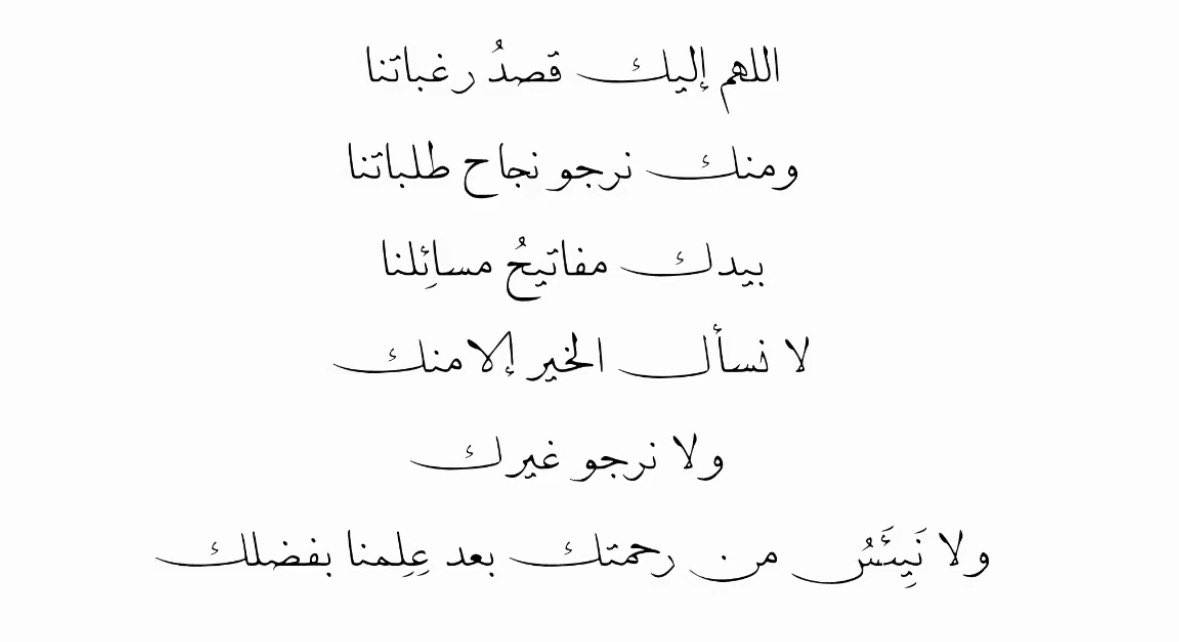 اللهم إليك قصدُ رغباتنا
ومنك نرجو نجاح طلباتنا
بيدك مفاتيحُ مسائِلنا
لا نسأل الخير إلا منك
ولا نرجو غيرك
ولا نَيِئَسُ من رحمتك بعد عِلِمنا بفضلك